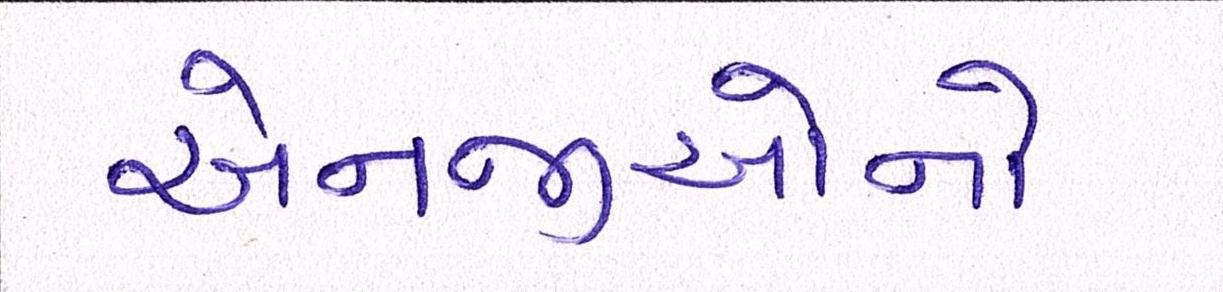 એનજીઓનો